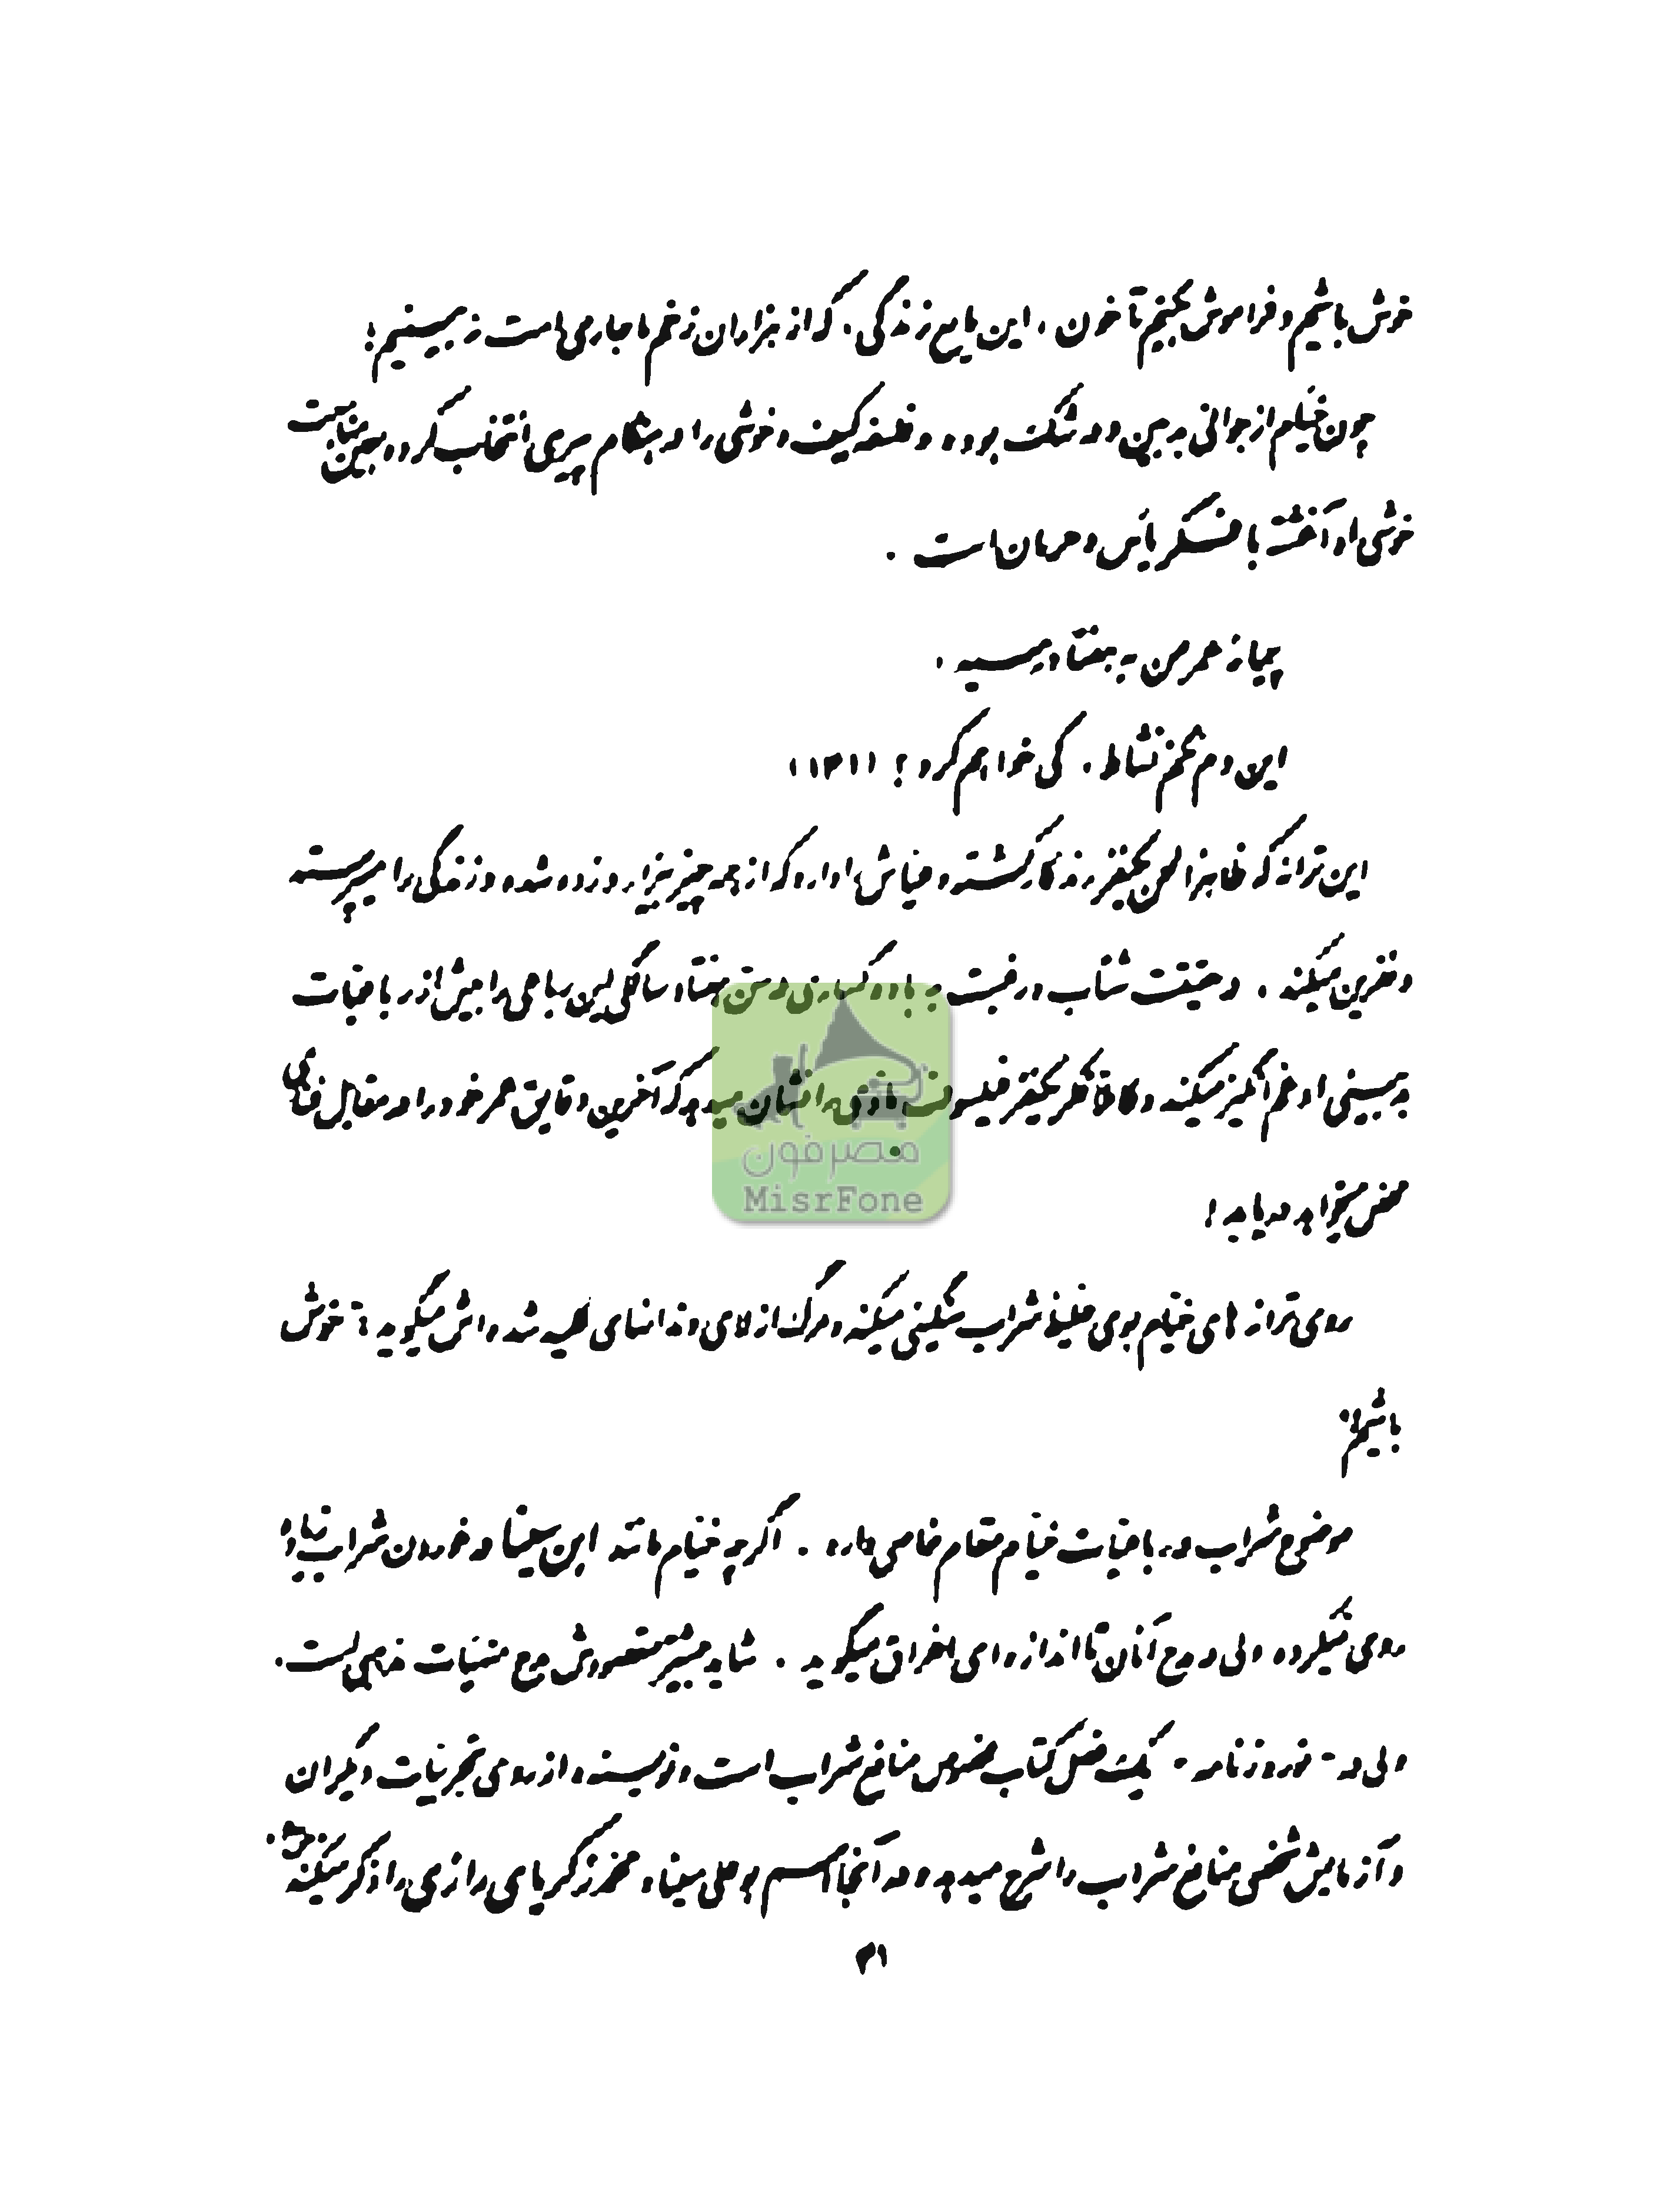 خوش باشیم و فراموش بکنیم تا خون ، این مایع زندگی ، که از هزاران زخم ما جاری است نه بینیم !
چون خیام از جوانی بدبین و در شک بوده و فلسفه کیف و خوشی را در هنگام پیری انتخاب کرده بهمین مناسبت
خوشی او آغشته با فکر یأس و حرمان است .
پیمانه عمر من به هفتاد رسید ،
این دم نکنم نشاط ، کی خواهم کرد ؟ (۱۳۱)
این ترانه که ظاهرا لحن یکنفر رند کارکشته و عیاش را دارد که از همه چیز بیزار و زده شده و زندگی را میپرستد
و نفرین میکند . در حقیقت شتاب و رغبت به باده گساری در سن هفتاد سالگی این رباعی را بیش از رباعیات
بدبینی او غم انگیز میکند و کاملا فکر یکنفر فیلسوف مادی را نشان میدهد که آخرین دقایق عمر خود را در مقابل فنای
محض میخواهد دریابد !
روی ترانه های خیام بوی غلیظ شراب سنگینی میکند و مرگ از لای دندانهای کلید شده اش میگوید : خوش
باشیم !
موضوع شراب در رباعیات خیام مقام خاصی دارد . اگرچه خیام مانند ابن سینا در خوردن شراب زیاده
روی نمیکرده ولی در مدح آن تا اندازه ای اغراق میگوید . شاید بیشتر مقصودش مدح منهیات مذهبی است .
ولی در - نوروزنامه - یک فصل کتاب مخصوص منافع شراب است و نویسنده از روی تجربیات دیگران
و آزمایش شخصی منافع شراب را شرح میدهد و در آنجا اسم بوعلی سینا و محمد زکریای رازی را ذکر میکند
۳۱
مصرفون
MisrFone